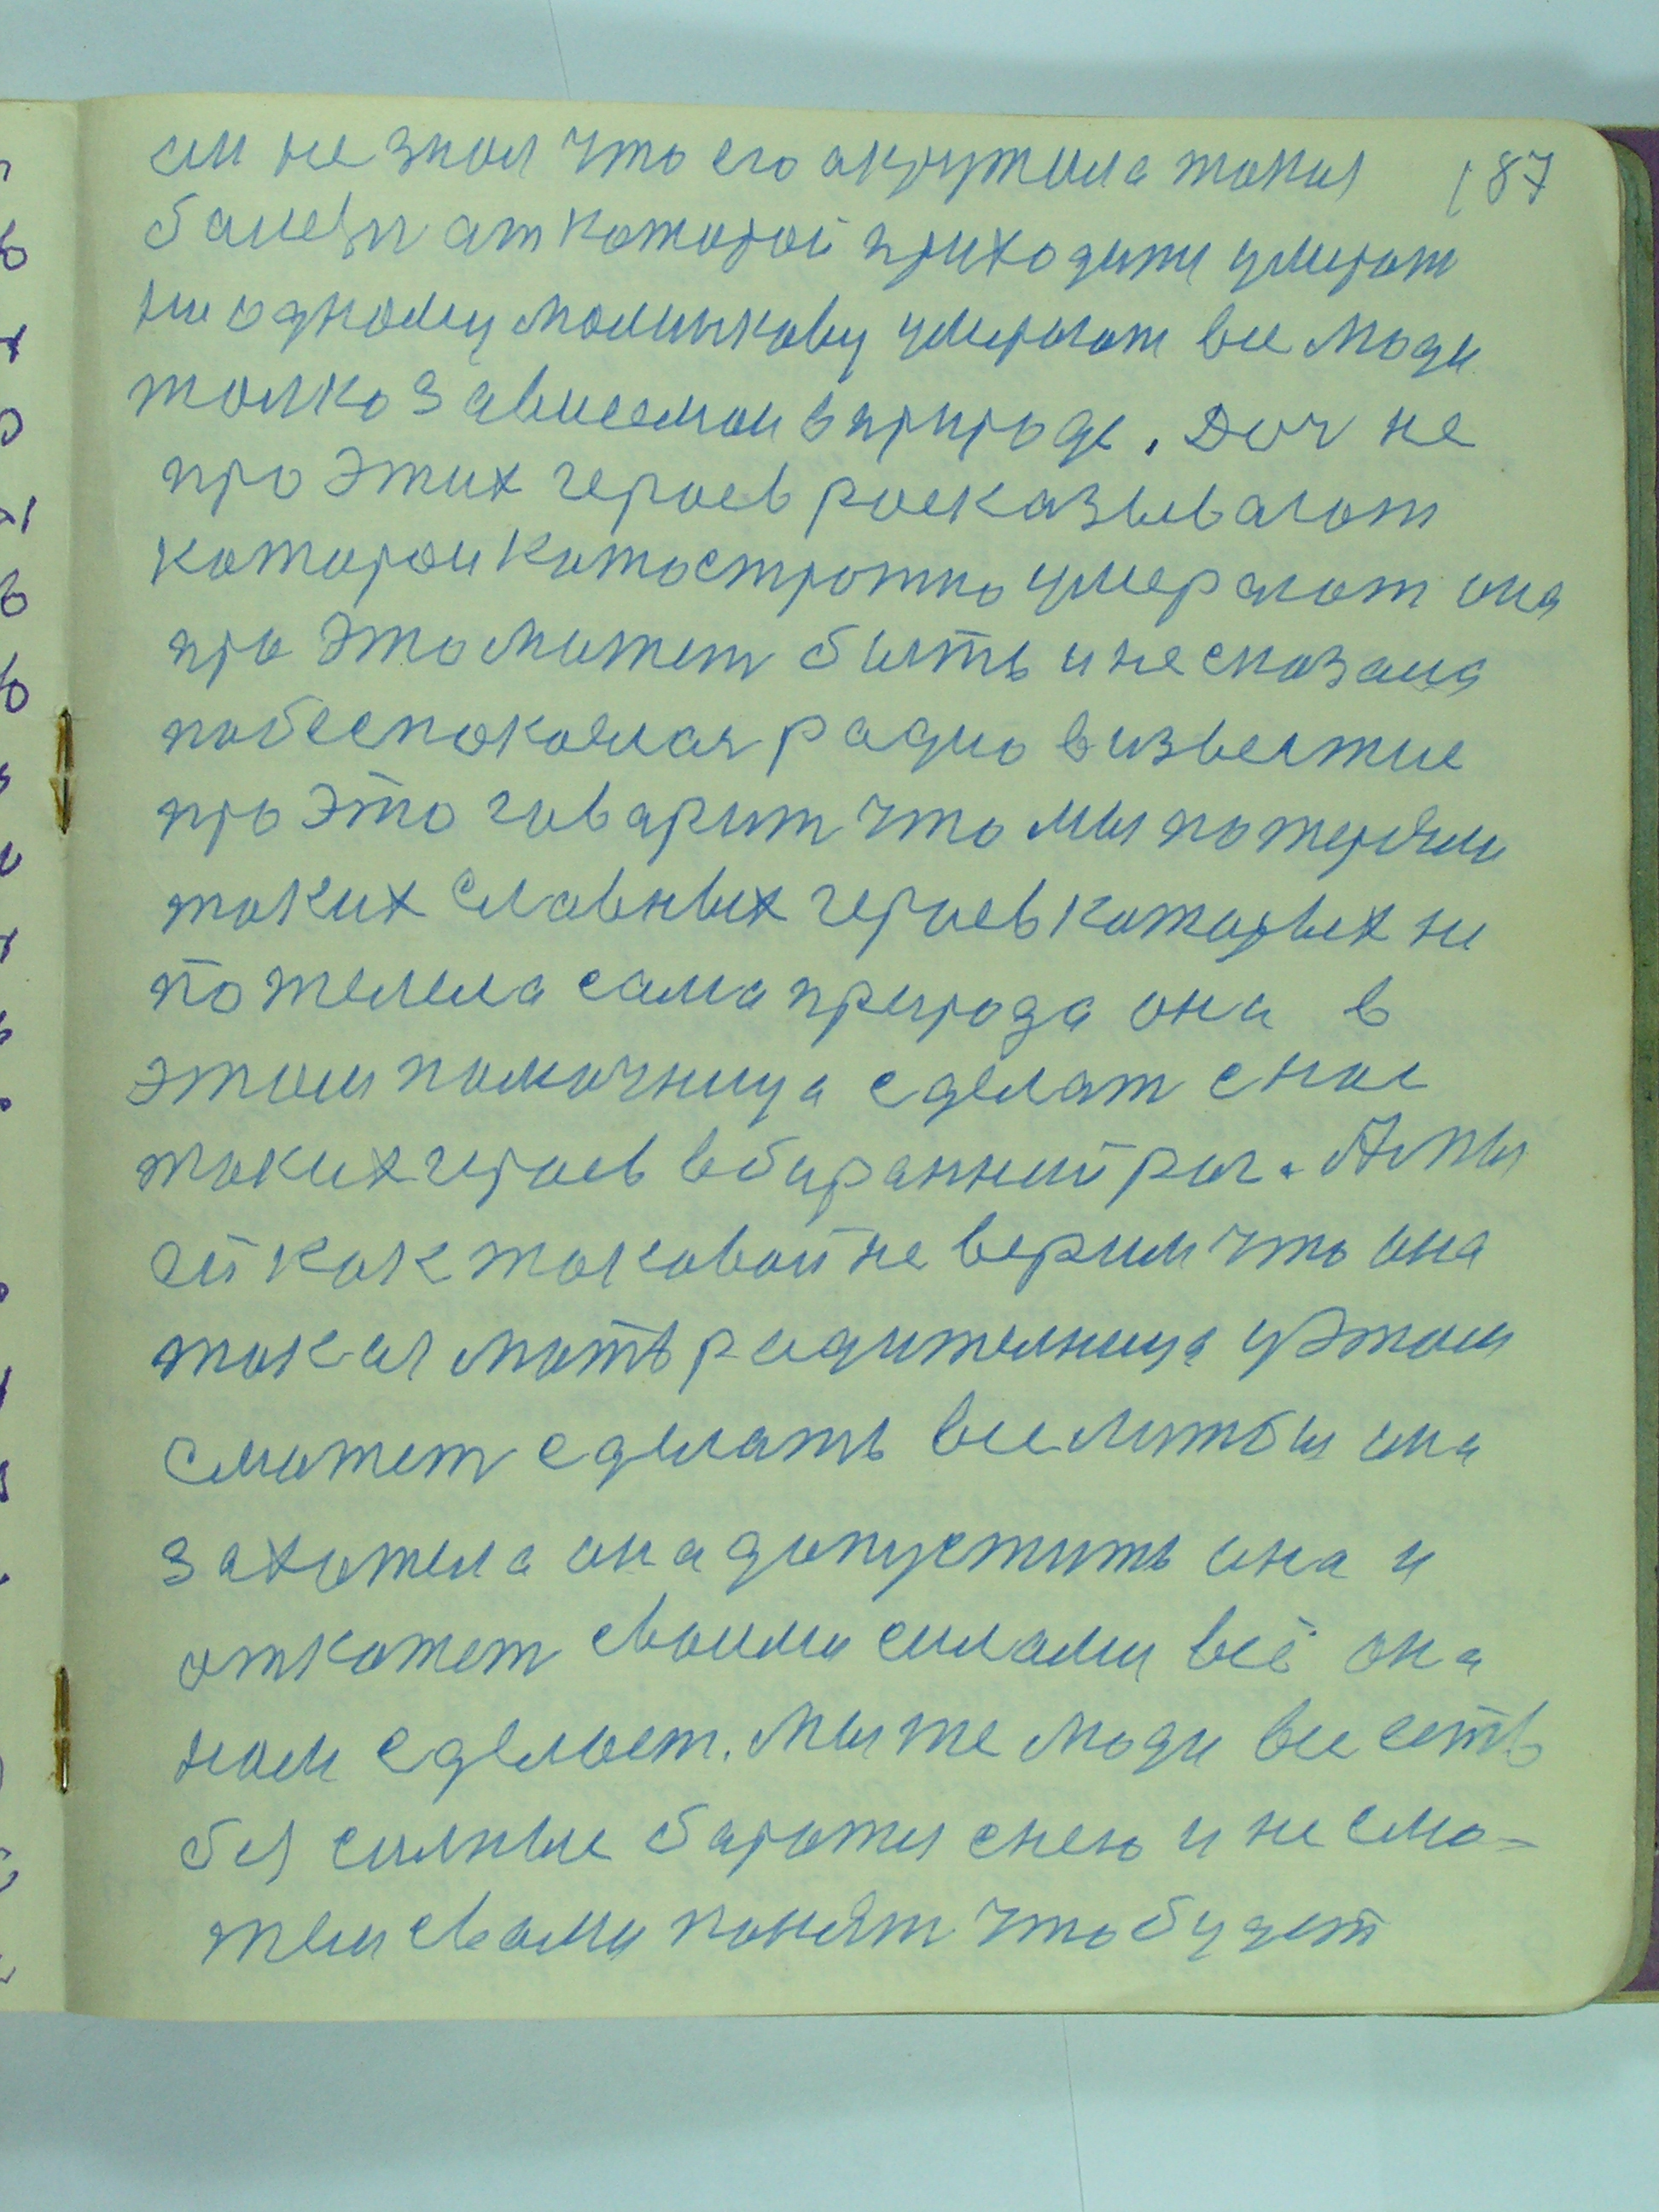 187
он не знал что его акружила такая
балезн ат каторай приходити умират
ни одному Малинкову умирают все люди
толко зависемои в природе. Доч не
про этих героев росказывают
каторои катострошно умерают она
про это может быть и не сказала
побеспокоилая радио в извествие
про это говарит что мы потеряли
таких славных героев каторых ни
пожелела сама природа она в
этом помочница сделат с нас
таких героев вбаранний рог. А мы
ей как таковой не верим что она
такая мать радителница у этом
сможет сделать все литбы она
захотела она допустить она и
откажет своими силами всё она
нам сделает. Мы же люди все есть
без силные баротся с нею и не смо-
жем с вами понят что будет